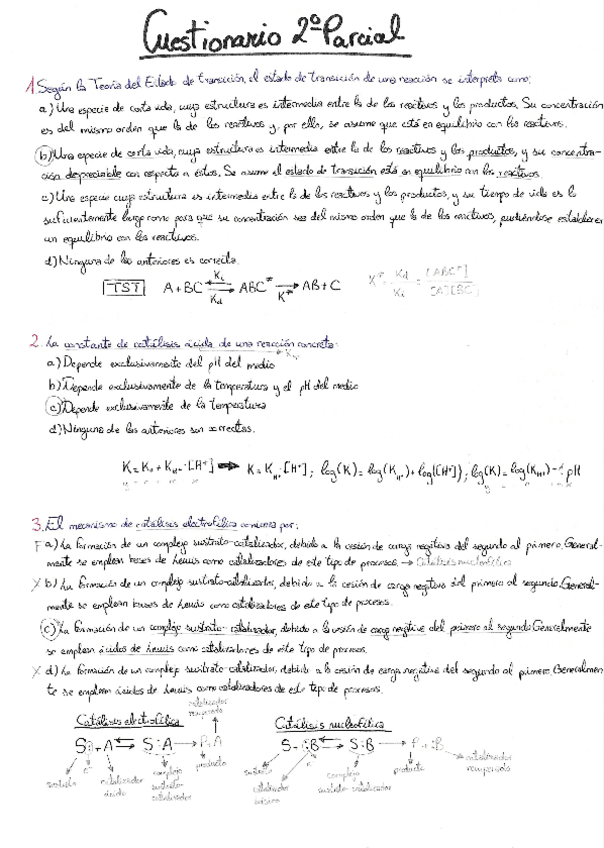 Cuestionario 2º Parcial
1 Según la Teoría del Estado de transición, el estado de transición de una reacción se interpreta como:
a) Una especie de corta vida, cuya estructura es intermedia entre la de los reactivos y los productos. Su concentración
es del mismo orden que la de los reactivos y, por ello, se asume que está en equilibrio con los reactivos.
b) Una especie de corta vida, cuya estructura es intermedia entre la de los reactivos y los productos, y su concentra-
ción despreciable con respecto a éstos. Se asume el estado de transición está en equilibrio con los reactivos.
c) Una especie cuya estructura es intermedia entre la de los reactivos y los productos, y su tiempo de vida es lo
suficientemente largo como para que su concentración sea del mismo orden que la de los reactivos, pudiéndose establecer
un equilibrio con los reactivos.
d) Ninguna de las anteriores es correcta.
TST A + BC ⇄ ABC‡ → AB + C
2. La constante de catálisis ácida de una reacción concreta:
a) Depende exclusivamente del pH del medio
b) Depende exclusivamente de la temperatura y el pH del medio
c) Depende exclusivamente de la temperatura
d) Ninguna de las anteriores son correctas.
3. El mecanismo de catálisis electrofílica comienza por:
F a) La formación de un complejo sustrato-catalizador, debido a la cesión de carga negativa del segundo al primero. General-
mente se emplean bases de Lewis como catalizadores de este tipo de procesos. → Catálisis nucleofílica
X b) La formación de un complejo sustrato-catalizador, debido a la cesión de carga negativa del primero al segundo. General-
mente se emplean bases de Lewis como catalizadores de este tipo de procesos.
c) La formación de un complejo sustrato-catalizador, debido a la cesión de carga negativa del primero al segundo. Generalmente
se emplean ácidos de Lewis como catalizadores de este tipo de procesos.
X d) La formación de un complejo sustrato-catalizador, debido a la cesión de carga negativa del segundo al primero. Generalmen
te se emplean ácidos de Lewis como catalizadores de este tipo de procesos.
catalizador
recuperado
Catálisis electrofílica Catálisis nucleofílica
sustrato catalizador ácido complejo sustrato catalizador producto
sustrato catalizador complejo sustrato-catalizador producto catalizador recuperado